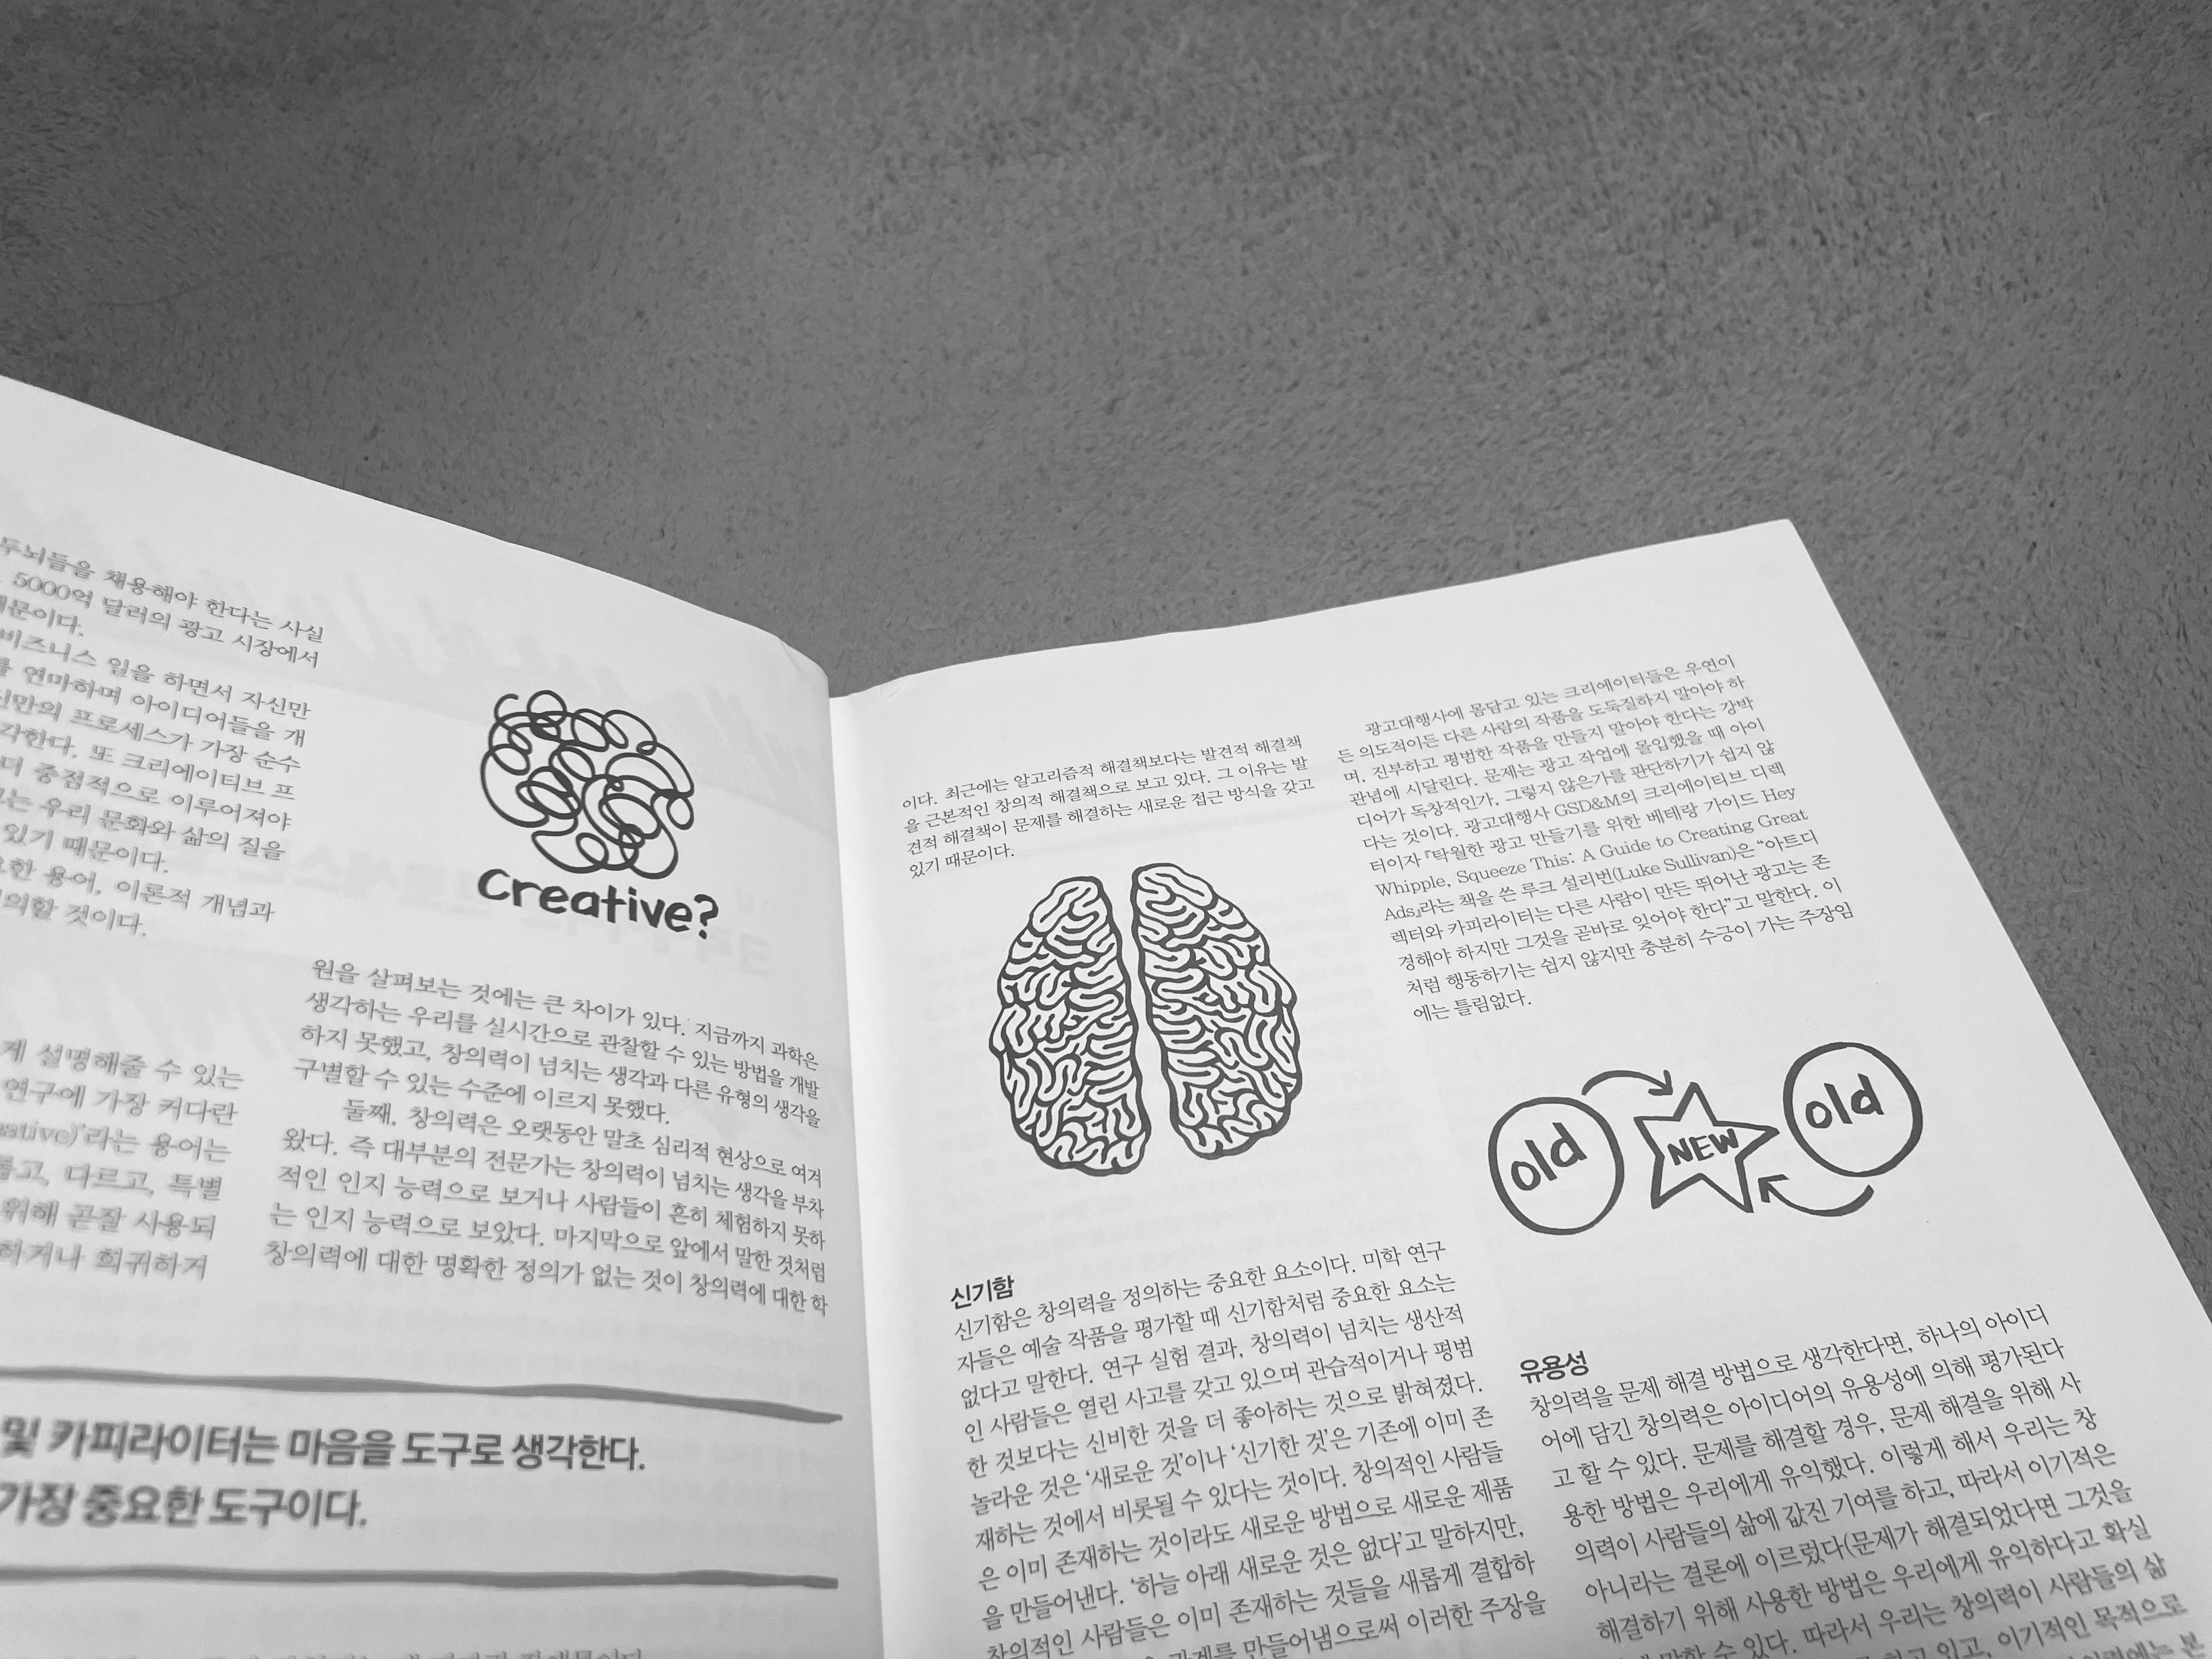 두뇌들을 채용해야 한다는 사실
5000억 달러의 광고 시장에서
때문이다.
비즈니스 일을 하면서 자신만
를 연마하며 아이디어들을 개
신만의 프로세스가 가장 순수
각한다. 또 크리에이티브 프
더 중점적으로 이루어져야
고는 우리 문화와 삶의 질을
있기 때문이다.
요한 용어, 이론적 개념과
의할 것이다.
게 설명해줄 수 있는
연구에 가장 커다란
eative)'라는 용어는
롭고, 다르고, 특별
위해 곧잘 사용되
하거나 희귀하거
creative?
원을 살펴보는 것에는 큰 차이가 있다. 지금까지 과학은
생각하는 우리를 실시간으로 관찰할 수 있는 방법을 개발
하지 못했고, 창의력이 넘치는 생각과 다른 유형의 생각을
구별할 수 있는 수준에 이르지 못했다.
둘째, 창의력은 오랫동안 말초 심리적 현상으로 여겨
왔다. 즉 대부분의 전문가는 창의력이 넘치는 생각을 부차
적인 인지 능력으로 보거나 사람들이 흔히 체험하지 못하
는 인지 능력으로 보았다. 마지막으로 앞에서 말한 것처럼
창의력에 대한 명확한 정의가 없는 것이 창의력에 대한 학
및 카피라이터는 마음을 도구로 생각한다.
가장 중요한 도구이다.
이다. 최근에는 알고리즘적 해결책보다는 발견적 해결책
을 근본적인 창의적 해결책으로 보고 있다. 그 이유는 발
견적 해결책이 문제를 해결하는 새로운 접근 방식을 갖고
있기 때문이다.
신기함
신기함은 창의력을 정의하는 중요한 요소이다. 미학 연구
자들은 예술 작품을 평가할 때 신기함처럼 중요한 요소는
없다고 말한다. 연구 실험 결과, 창의력이 넘치는 생산적
인 사람들은 열린 사고를 갖고 있으며 관습적이거나 평범
한 것보다는 신비한 것을 더 좋아하는 것으로 밝혀졌다.
놀라운 것은 '새로운 것'이나 '신기한 것'은 기존에 이미 존
재하는 것에서 비롯될 수 있다는 것이다. 창의적인 사람들
은 이미 존재하는 것이라도 새로운 방법으로 새로운 제품
을 만들어낸다. '하늘 아래 새로운 것은 없다'고 말하지만,
창의적인 사람들은 이미 존재하는 것들을 새롭게 결합하
관계를 만들어냄으로써 이러한 주장을
광고대행사에 몸담고 있는 크리에이터들은 우연이
든 의도적이든 다른 사람의 작품을 도둑질하지 말아야 하
며, 진부하고 평범한 작품을 만들지 말아야 한다는 강박
관념에 시달린다. 문제는 광고 작업에 몰입했을 때 아이
디어가 독창적인가, 그렇지 않은가를 판단하기가 쉽지 않
다는 것이다. 광고대행사 GSD&M의 크리에이티브 디렉
터이자 『탁월한 광고 만들기를 위한 베테랑 가이드 Hey
Whipple, Squeeze This: A Guide to Creating Great
Ads』라는 책을 쓴 루크 설리번(Luke Sullivan)은 “아트디
렉터와 카피라이터는 다른 사람이 만든 뛰어난 광고는 존
경해야 하지만 그것을 곧바로 잊어야 한다”고 말한다. 이
처럼 행동하기는 쉽지 않지만 충분히 수긍이 가는 주장임
에는 틀림없다.
old NEW old
유용성
창의력을 문제 해결 방법으로 생각한다면, 하나의 아이디
어에 담긴 창의력은 아이디어의 유용성에 의해 평가된다
고 할 수 있다. 문제를 해결할 경우, 문제 해결을 위해 사
용한 방법은 우리에게 유익했다. 이렇게 해서 우리는 창
의력이 사람들의 삶에 값진 기여를 하고, 따라서 이기적은
아니라는 결론에 이르렀다(문제가 해결되었다면 그것을
해결하기 위해 사용한 방법은 우리에게 유익하다고 확실
말할 수 있다. 따라서 우리는 창의력이 사람들의 삶
하고 있고, 이기적인 목적으로